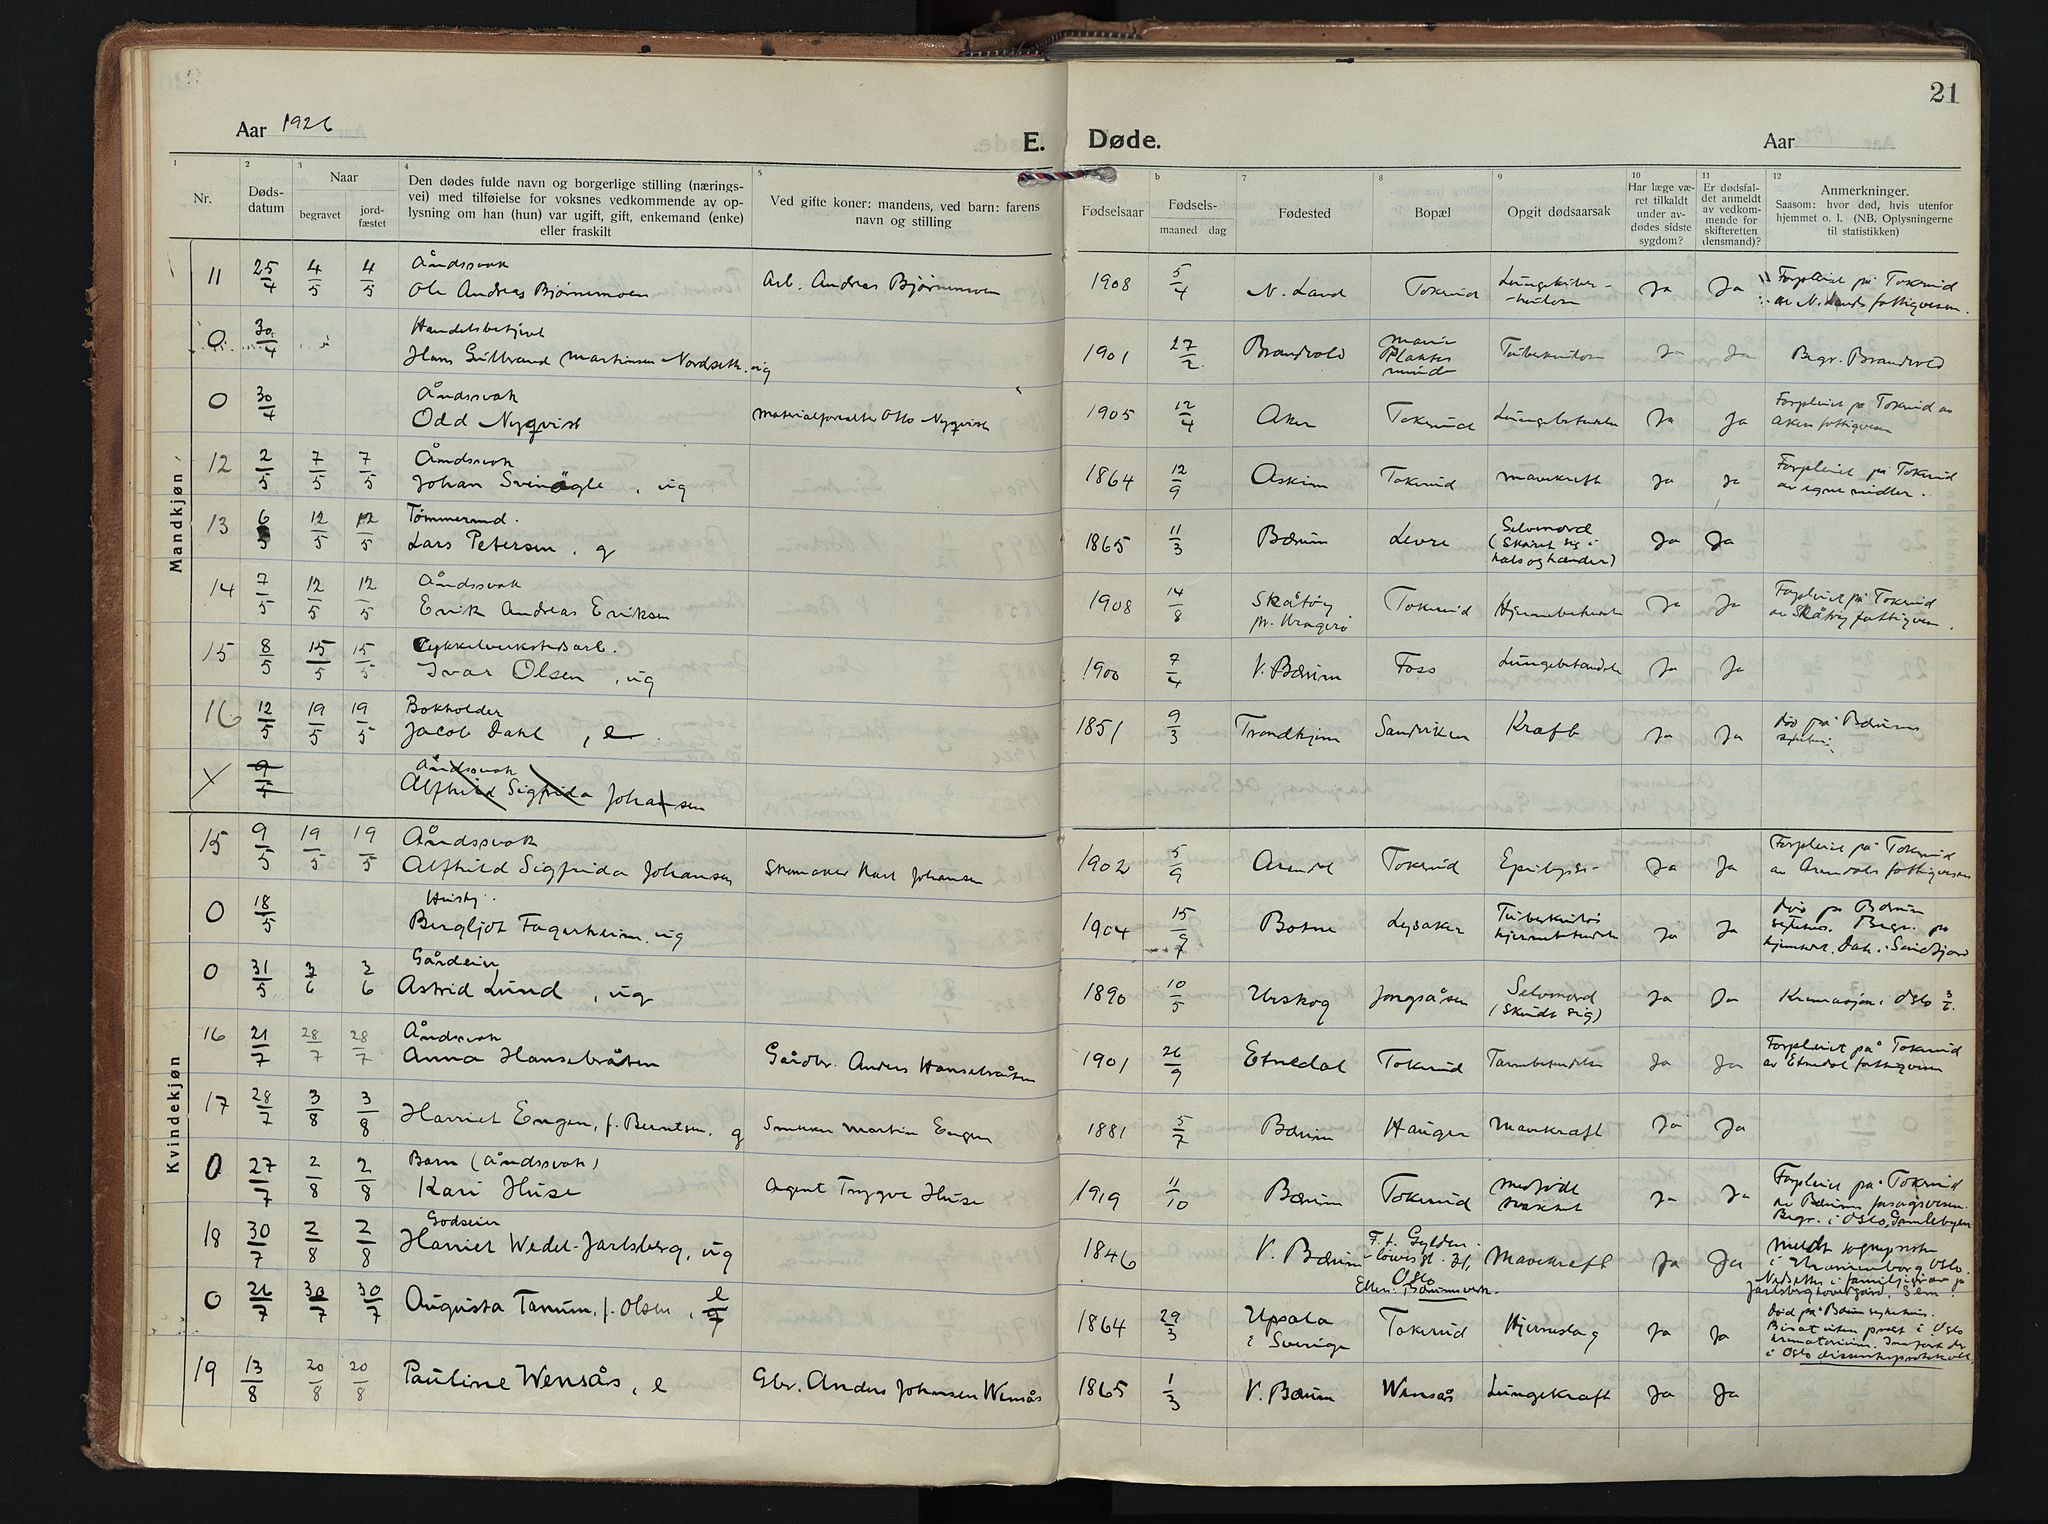 21
Aar 1926
E. Døde.
Aar
1 2 3 4 5 b 7 8 9 10 11 12
Nr.
Døds-
datum
Naar
begravet
jord-
fæstet
Den dødes fulde navn og borgerlige stilling (nærings-
vei) med tilføielse for voksnes vedkommende av op-
lysning om han (hun) var ugift, gift, enkemand (enke)
eller fraskilt
Ved gifte koner: mandens, ved barn: farens
navn og stilling
Fødselsaar
Fødsels-
maaned dag
Fødested
Bopæl
Opgit dødsaarsak
Har læge væ-
ret tilkaldt
under av-
dødes sidste
sygdom?
Er dødsfal-
det anmeldt
av vedkom-
mende for
skifteretten
(lensmand)?
Anmerkninger.
Saasom: hvor død, hvis utenfor
hjemmet o. l. (NB. Oplysningerne
til statistikken)
Mandkjøn
11 25/4 4/5 4/5 Åndssvak
Ole Andreas Bjørnemoen Arb. Andreas Bjørnemoen 1908 5/4 N. Land Tokerud Ja Ja Forpleiet på Tokerud
av N. Lands fattigvesen.
0 30/4 Handelsbetjent
Hans Gulbrand Martinsen Nordseth. ug 1901 27/2 Brandvold Maria
Plantes
minde Tuberkulose Ja Ja Begr. Brandvold
0 30/4 Åndssvak
Odd Nyqvist Materialforvalter Otto Nyqvist 1905 12/4 Aker Tokerud Lungebetendelse Ja Ja Forpleiet på Tokerud av
Akers fattigvesen
12 2/5 7/5 7/5 Åndssvak
Johan Svenøgle, ug 1864 12/9 Askim Tokerud Mavekræft Ja Ja Forpleiet på Tokerud
av egne midler.
13 6/5 12/5 12/5 Tømmermd.
Lars Petersen, g 1865 11/3 Bærum Levre Selvmord
(skåret sig i
hals og hænder) Ja Ja
14 7/5 12/5 12/5 Åndssvak
Erik Andreas Eriksen 1908 14/8 Skåtøy
pr. Kragerø Tokerud Hjernebetendelse Ja Ja Forpleiet på Tokerud
av Skåtøy fattigvesen.
15 8/5 15/5 15/5 Cykkelverkstedsarb.
Ivar Olsen, ug 1900 7/4 V. Bærum Foss Lungebetændelse Ja Ja
16 12/5 19/5 19/5 Bokholder
Jacob Dahl, e. 1851 9/3 Trondhjem Sandviken Kræft Ja Ja død på Bærums
sykehus
X 9/5 Åndssvak
Alfhild Sigfrida Johansen
Kvindekjøn
15 9/5 19/5 19/5 Åndssvak
Alfhild Sigfrida Johansen Skomaker Karl Johansen 1902 5/9 Arendal Tokerud Epilepsi Ja Ja Forpleiet på Tokerud
av Arendals fattigvesen
0 18/5 Hushj.
Bergljot Fagerheim, ug 1904 15/9 Botne Lysaker Tuberkuløs
hjernebetendelse Ja Ja død på Bærum
sykehus. Begr. på
hjemstedet. Dat. i Sandefjord
0 31/5 3/6 3/6 Gårdeier
Astrid Lund, ug 1890 10/5 Urskog Jongsåsen Selvmord
(skudt sig) Ja Ja Kremasjon i Oslo 3/6.
16 21/7 28/7 28/7 Åndssvak
Anna Hansebråten Gårdbr. Anders Hansebråten 1901 26/9 Etnedal Tokerud Tarmbetendelse Ja Ja Forpleiet på Tokerud
av Etnedal fattigvesen
17 28/7 3/8 3/8 Harriet Engen, f. Berntsen, g Snekker Martin Engen 1881 5/7 Bærum Hauger Mavekræft Ja Ja
0 27/7 2/8 2/8 Barn (Åndssvak)
Kari Huse Agent Trygve Huse 1919 11/10 Bærum Tokerud Medfødt
svakhet Ja Ja Forpleiet på Tokerud
av Bærums forsorgsvesen.
Begr. i Oslo, Gamlebyen
18 30/7 2/8 2/8 Godseier
Harriet Wedel-Jarlsberg, ug 1846 V. Bærum F. t. Gylden-
løwesgt. 31,
Oslo
Ellers: Bærumsverk. Mavekræft Ja Ja Meldt sogneprestn
i Uranienborg Oslo.
Nedsettes i familiegrav på
Jarlsberg hovergård, Sem.
0 26/7 30/7 30/7 Augusta Tanum, f. Olsen, e 1864 29/3 Upsala
i Sverige Tokerud Hjerneslag Ja Ja Død på Bærum sykehus.
Bisat uten prest i Oslo
krematorium. Innført der
i Oslo dissenterprotokoll
19 13/8 20/8 20/8 Pauline Wensås, e Gbr. Anders Johansen Wensås 1865 1/3 V. Bærum Wensås Lungekræft Ja Ja